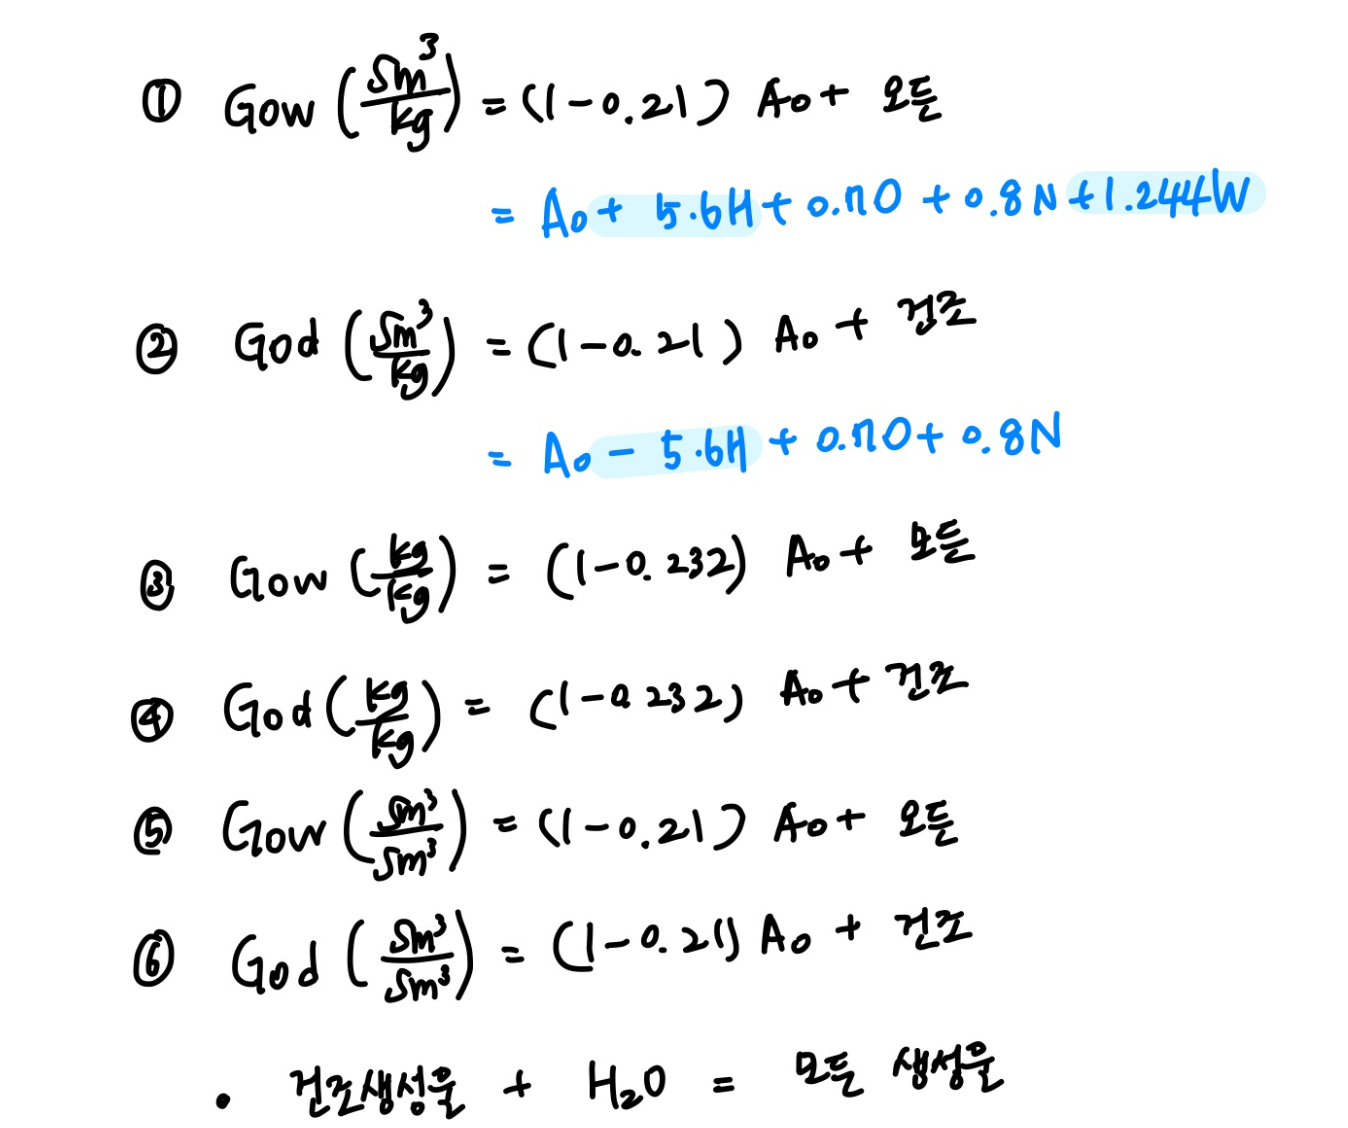 ① Gow (Sm³/kg) = (1-0.21) Ao + 모든
= Ao + 5.6H + 0.7O + 0.8N + 1.244W
② God (Sm³/kg) = (1-0.21) Ao + 건조
= Ao - 5.6H + 0.7O + 0.8N
③ Gow (kg/kg) = (1-0.232) Ao + 모든
④ God (kg/kg) = (1-0.232) Ao + 건조
⑤ Gow (Sm³/Sm³) = (1-0.21) Ao + 모든
⑥ God (Sm³/Sm³) = (1-0.21) Ao + 건조
• 건조생성물 + H₂O = 모든 생성물